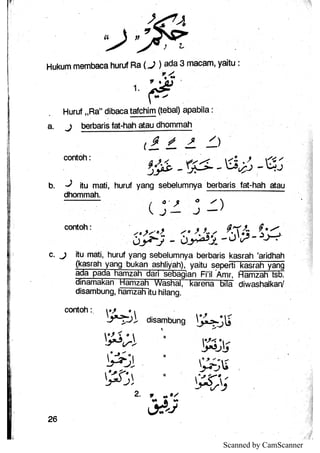 حُكْمُ „ر”
Hukum membaca huruf Ra ( ر ) ada 3 macam, yaitu :
1. تَفْخِيْم
Huruf „Ra” dibaca tafchim (tebal) apabila :
a. ر berbaris fat-hah atau dhommah
contoh :
رَبَّنَا - رُزِقْنَا -
b. ر itu mati, huruf yang sebelumnya berbaris fat-hah atau
dhommah.
contoh :
بَرْدًا - قُرْآنٌ - يُرْضُوْنَ - تُرْحَمُوْنَ
c. ر itu mati, huruf yang sebelumnya berbaris kasrah 'aridhah
(kasrah yang bukan ashliyah), yaitu seperti kasrah yang
ada pada hamzah dari sebagian Fi'il Amr, Hamzah tsb.
dinamakan Hamzah Washal, karena bila diwashalkan/
disambung, hamzah itu hilang.
contoh : اِرْجِعُوْا disambung فَارْجِعُوْا
اِرْكَعُوْا " وَارْكَعُوْا
2. تَرْقِيْق
26
Scanned by CamScanner